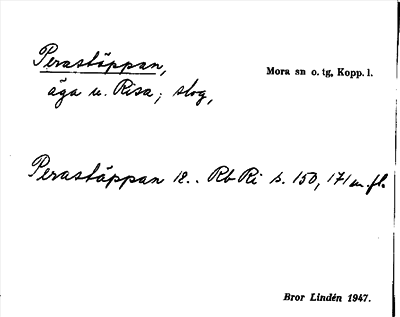 Perastäppan,
Mora sn o. tg, Kopp. l.
äga u. Risa; slog,
Perastäppan 18.. Rb Ri s. 150, 171 m. fl.
Bror Lindén 1947.